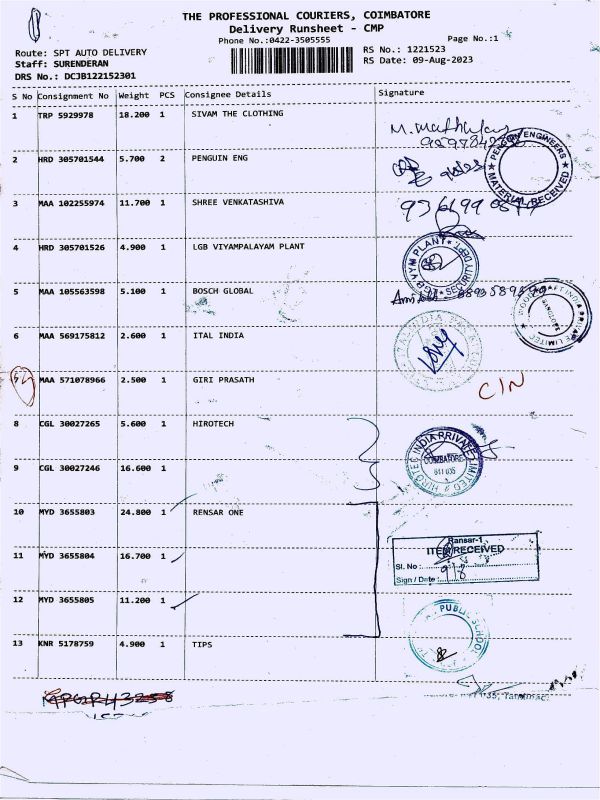 THE PROFESSIONAL COURIERS, COIMBATORE
Delivery Runsheet - CMP
Phone No.:0422-3505555
Page No.:1
Route: SPT AUTO DELIVERY
RS No.: 1221523
Staff: SURENDERAN
RS Date: 09-Aug-2023
DRS No.: DCJB122152301
S No Consignment No Weight PCS Consignee Details Signature
1 TRP 5929978 18.200 1 SIVAM THE CLOTHING
2 HRD 305701544 5.700 2 PENGUIN ENG
PENGUIN ENGINEERS
MATERIAL RECEIVED
3 MAA 102255974 11.700 1 SHREE VENKATASHIVA
4 HRD 305701526 4.900 1 LGB VIYAMPALAYAM PLANT
SECURITY DEPT.
5 MAA 105563598 5.100 1 BOSCH GLOBAL
6 MAA 569175812 2.600 1 ITAL INDIA
MAA 571078966 2.500 1 GIRI PRASATH
CIN
8 CGL 30027265 5.600 1 HIROTECH
HIROTEC INDIA PRIVATE LIMITED
COIMBATORE
641 035
9 CGL 30027246 16.600 1
10 MYD 3655803 24.800 1 RENSAR ONE
Ransar-1
ITEM RECEIVED
11 MYD 3655804 16.700 1
Sl. No :
9/8
Sign / Date :
12 MYD 3655805 11.200 1
PUBLIC SCHOOL
13 KNR 5178759 4.900 1 TIPS